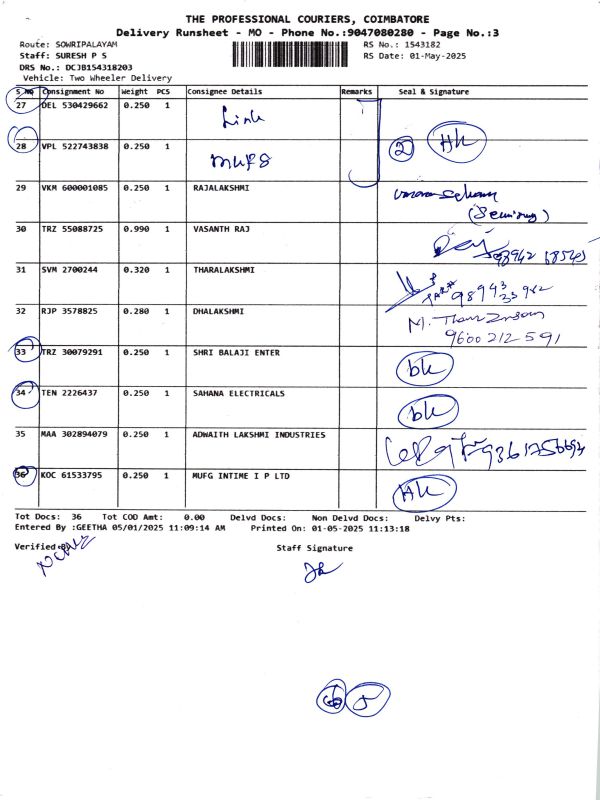 THE PROFESSIONAL COURIERS, COIMBATORE
Delivery Runsheet - MO - Phone No.:9047080280 - Page No.:3
Route: SOWRIPALAYAM RS No.: 1543182
Staff: SURESH P S RS Date: 01-May-2025
DRS No.: DCJB154318203
Vehicle: Two Wheeler Delivery
S.No Consignment No Weight PCS Consignee Details Remarks Seal & Signature
27 DEL 530429662 0.250 1 Link
28 VPL 522743838 0.250 1 MUFG 2 HK
29 VKM 600001085 0.250 1 RAJALAKSHMI
30 TRZ 55088725 0.990 1 VASANTH RAJ
31 SVM 2700244 0.320 1 THARALAKSHMI
32 RJP 3578825 0.280 1 DHALAKSHMI M.
9600 212 591
33 TRZ 30079291 0.250 1 SHRI BALAJI ENTER bk
34 TEN 2226437 0.250 1 SAHANA ELECTRICALS bk
35 MAA 302894079 0.250 1 ADWAITH LAKSHMI INDUSTRIES
36 KOC 61533795 0.250 1 MUFG INTIME I P LTD HK
Tot Docs: 36 Tot COD Amt: 0.00 Delvd Docs: Non Delvd Docs: Delvy Pts:
Entered By :GEETHA 05/01/2025 11:09:14 AM Printed On: 01-05-2025 11:13:18
Verified By
Staff Signature